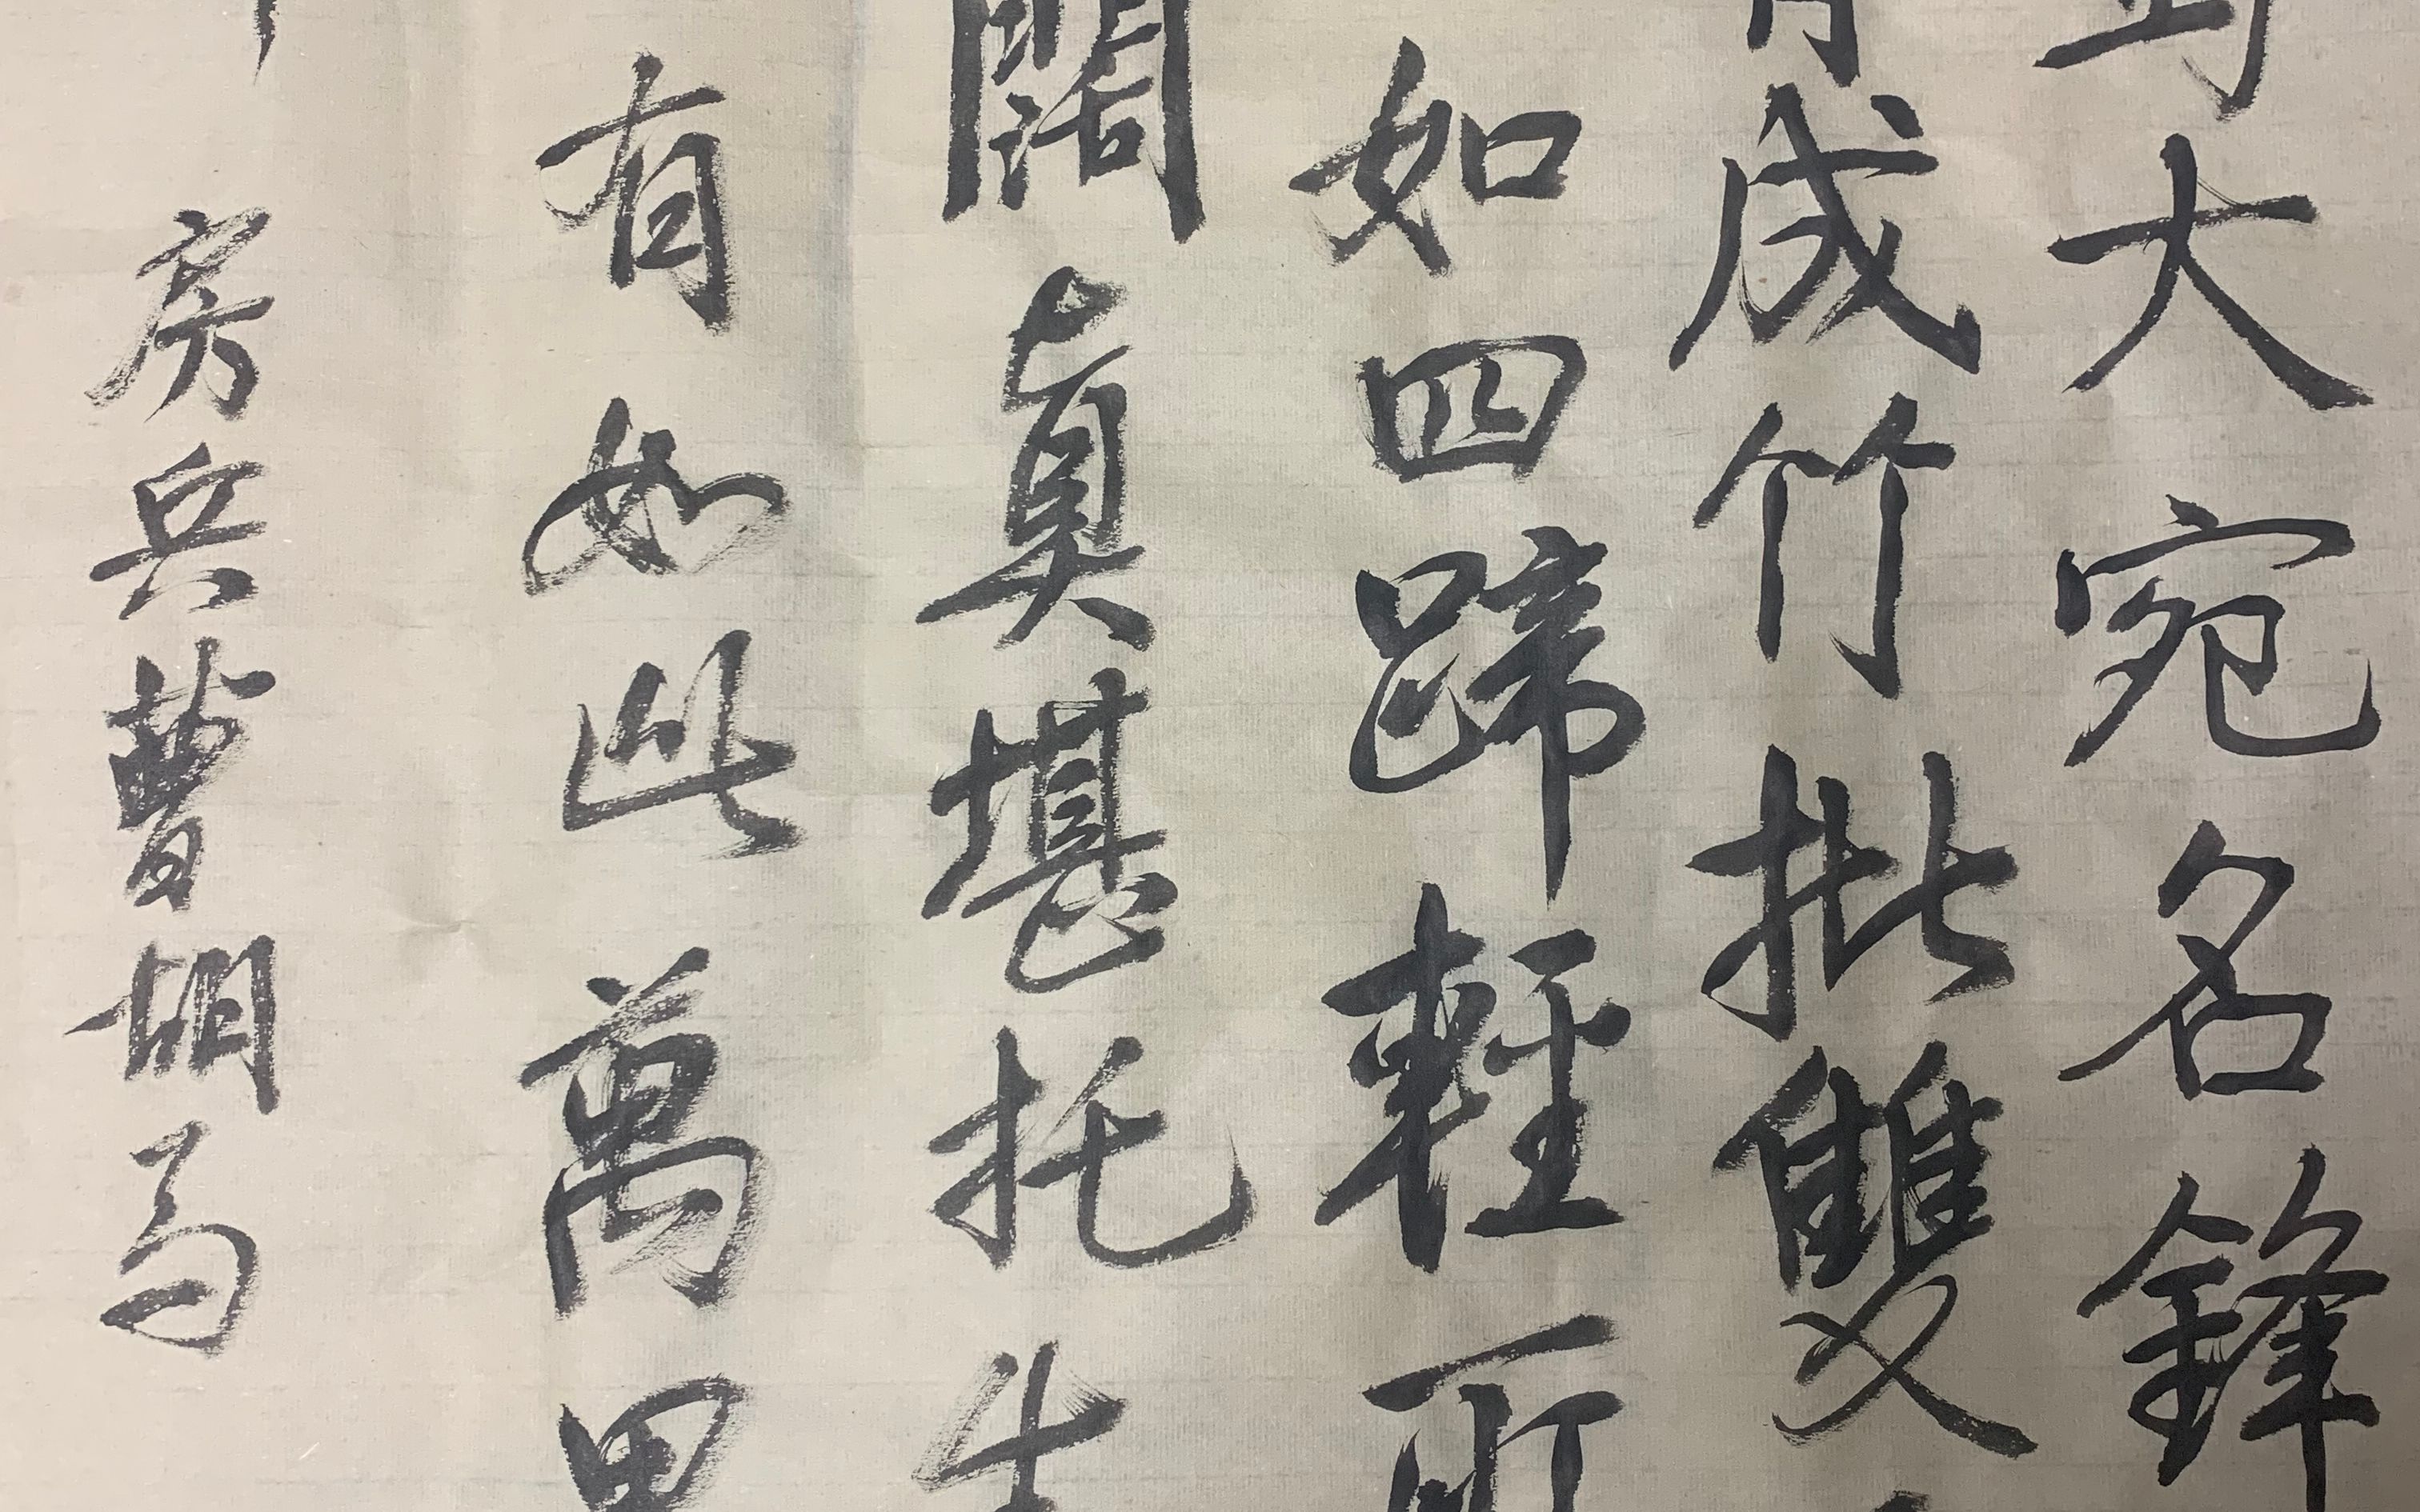 馬大宛名鋒
成竹批雙
如四蹄輕所
闊真堪托生
有如此萬里
房兵曹胡馬